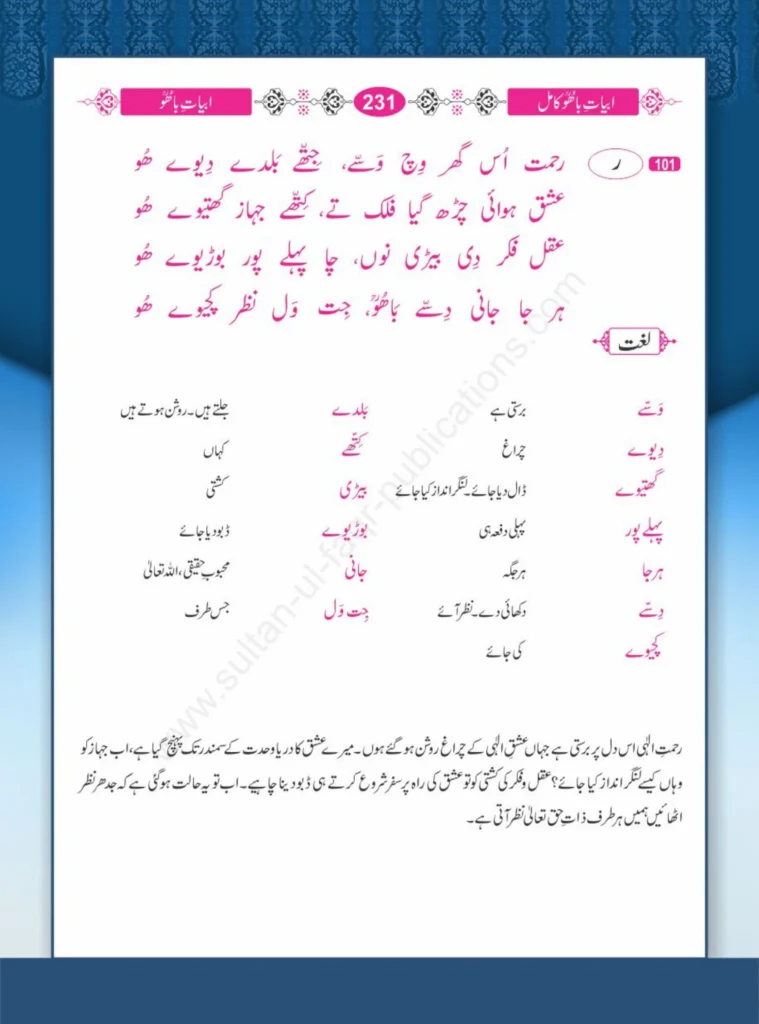 ابیاتِ باھُوؒ کامل 231 ابیاتِ باھُوؒ
101 ر
رحمت اُس گھر وِچ وَسّے، جِتّھے بَلدے دِیوے ھُو
عشق ہوائی چڑھ گیا فلک تے، کِتّھے جہاز گھتیوے ھُو
عقل فکر دِی بیڑی نوں، چا پہلے پور بوڑیوے ھُو
ہر جا جانی دِسّے بَاھُوؒ، جِت وَل نظر کچیوے ھُو
لغت
وَسّے برستی ہے بَلدے جلتے ہیں۔ روشن ہوتے ہیں
دِیوے چراغ کِتّھے کہاں
گھتیوے ڈال دیا جائے۔ لنگر انداز کیا جائے بیڑی کشتی
پہلے پور پہلی دفعہ ہی بوڑیوے ڈبو دیا جائے
ہر جا ہر جگہ جانی محبوبِ حقیقی، اللہ تعالیٰ
دِسّے دکھائی دے۔ نظر آئے جِت وَل جس طرف
کچیوے کی جائے
رحمتِ الٰہی اس دل پر برستی ہے جہاں عشقِ الٰہی کے چراغ روشن ہو گئے ہوں۔ میرے عشق کا دریا وحدت کے سمندر تک پہنچ گیا ہے، اب جہاز کو
وہاں کیسے لنگر انداز کیا جائے؟ عقل و فکر کی کشتی کو تو عشق کی راہ پر سفر شروع کرتے ہی ڈبو دینا چاہیے۔ اب تو یہ حالت ہو گئی ہے کہ جدھر نظر
اٹھائیں ہمیں ہر طرف ذاتِ حق تعالیٰ نظر آتی ہے۔
www.sultan-ul-faqr-publications.com